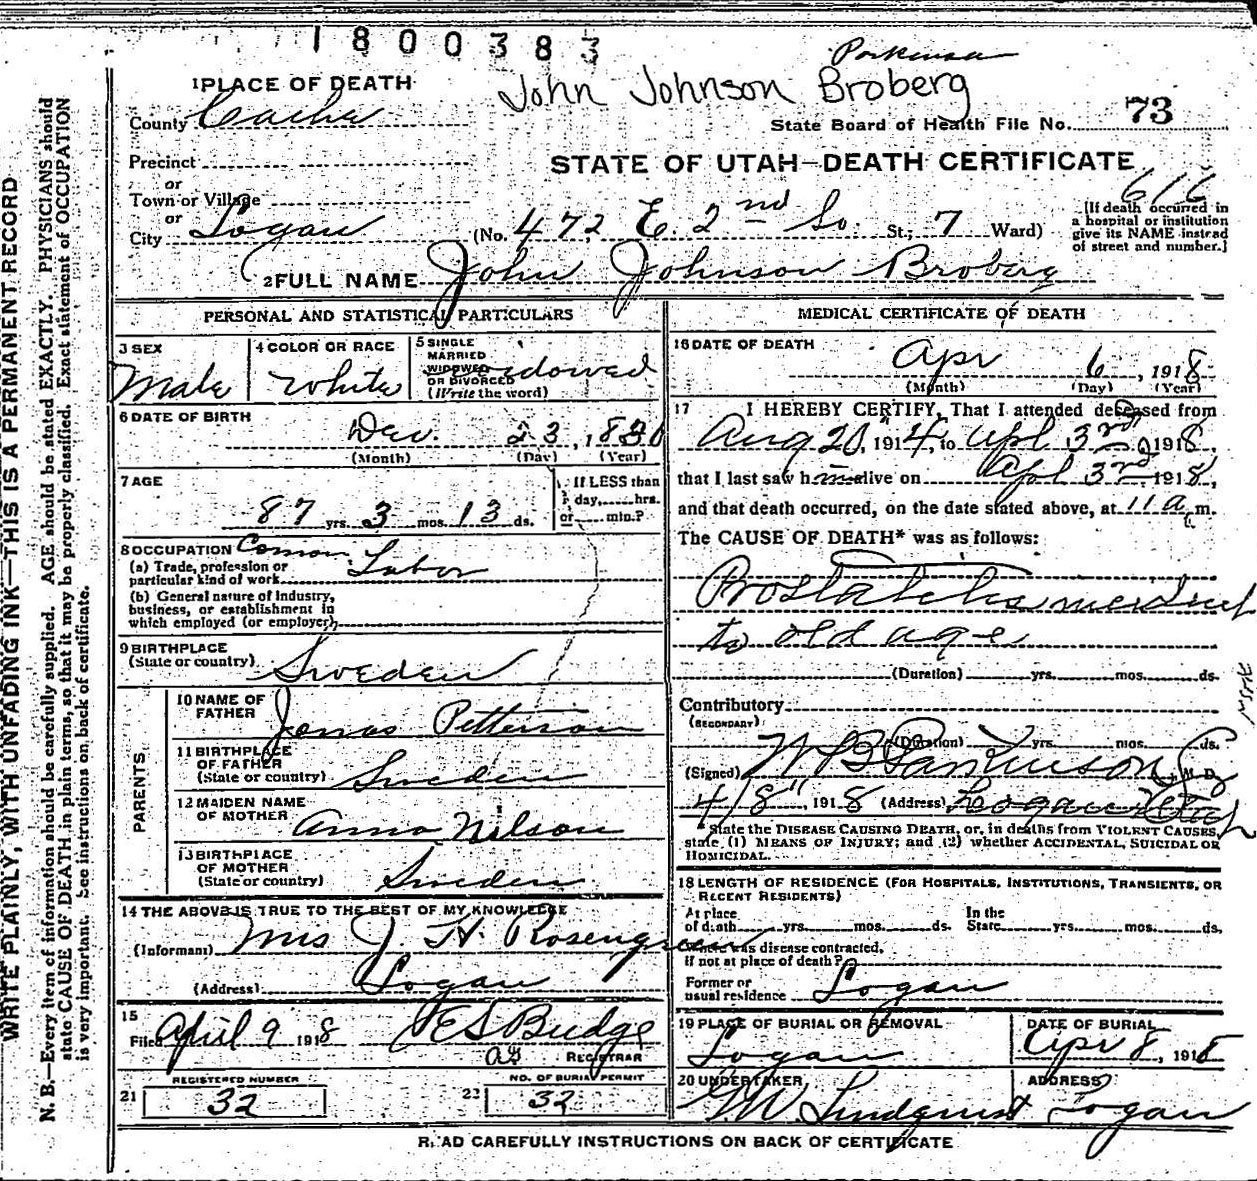 1800383
Parkinson
John Johnson Broberg
1 PLACE OF DEATH
County Cache
State Board of Health File No. 73
Precinct
STATE OF UTAH—DEATH CERTIFICATE
or
Town or Village
616
or
City Logan
(No. 472 E. 2nd So St; 7 Ward)
[If death occurred in
a hospital or institution
give its NAME instead
of street and number.]
2 FULL NAME John Johnson Broberg
PERSONAL AND STATISTICAL PARTICULARS
3 SEX
Male
4 COLOR OR RACE
White
5 SINGLE
MARRIED
WIDOWED
OR DIVORCED
(Write the word)
widowed
6 DATE OF BIRTH
Dec. 23, 1830
(Month) (Day) (Year)
7 AGE
87 yrs. 3 mos. 13 ds.
If LESS than
day, hrs.
or min.?
8 OCCUPATION
(a) Trade, profession or
particular kind of work
Comon Labor
(b) General nature of industry,
business, or establishment in
which employed (or employer)
9 BIRTHPLACE
(State or country) Sweden
PARENTS
10 NAME OF
FATHER Jonas Petterson
11 BIRTHPLACE
OF FATHER
(State or country) Sweden
12 MAIDEN NAME
OF MOTHER Anna Nilson
13 BIRTHPLACE
OF MOTHER
(State or country) Sweden
14 THE ABOVE IS TRUE TO THE BEST OF MY KNOWLEDGE
(Informant) Mrs J. H. Rosengreen
(Address) Logan
15
Filed April 9 1918 E S Budge
REGISTRAR
REGISTERED NUMBER
21 32
NO. OF BURIAL PERMIT
22 32
MEDICAL CERTIFICATE OF DEATH
16 DATE OF DEATH
Apr 6, 1918
(Month) (Day) (Year)
17 I HEREBY CERTIFY, That I attended deceased from
Aug 20, 1914, to Apl 3rd 1918,
that I last saw him alive on Apl 3rd 1918,
and that death occurred, on the date stated above, at 11 a. m.
The CAUSE OF DEATH* was as follows:
Prostatitis
to old age
(Duration) yrs. mos. ds.
Contributory
(SECONDARY)
(Duration) yrs. mos. ds.
(Signed) W B Parkinson M.D.
4/8", 1918 (Address) Logan Utah
*State the DISEASE CAUSING DEATH, or, in deaths from VIOLENT CAUSES,
state (1) MEANS OF INJURY; and (2) whether ACCIDENTAL, SUICIDAL OR
HOMICIDAL.
18 LENGTH OF RESIDENCE (FOR HOSPITALS, INSTITUTIONS, TRANSIENTS, OR
RECENT RESIDENTS)
At place
of death yrs. mos. ds.
In the
State yrs. mos. ds.
Where was disease contracted,
if not at place of death?
Former or
usual residence Logan
19 PLACE OF BURIAL OR REMOVAL
Logan
DATE OF BURIAL
Apr 8, 1918
20 UNDERTAKER
Lindquist
ADDRESS
Logan
READ CAREFULLY INSTRUCTIONS ON BACK OF CERTIFICATE
WRITE PLAINLY, WITH UNFADING INK—THIS IS A PERMANENT RECORD
N. B.—Every item of information should be carefully supplied. AGE should be stated EXACTLY. PHYSICIANS should
state CAUSE OF DEATH in plain terms, so that it may be properly classified. Exact statement of OCCUPATION
is very important. See instructions on back of certificate.